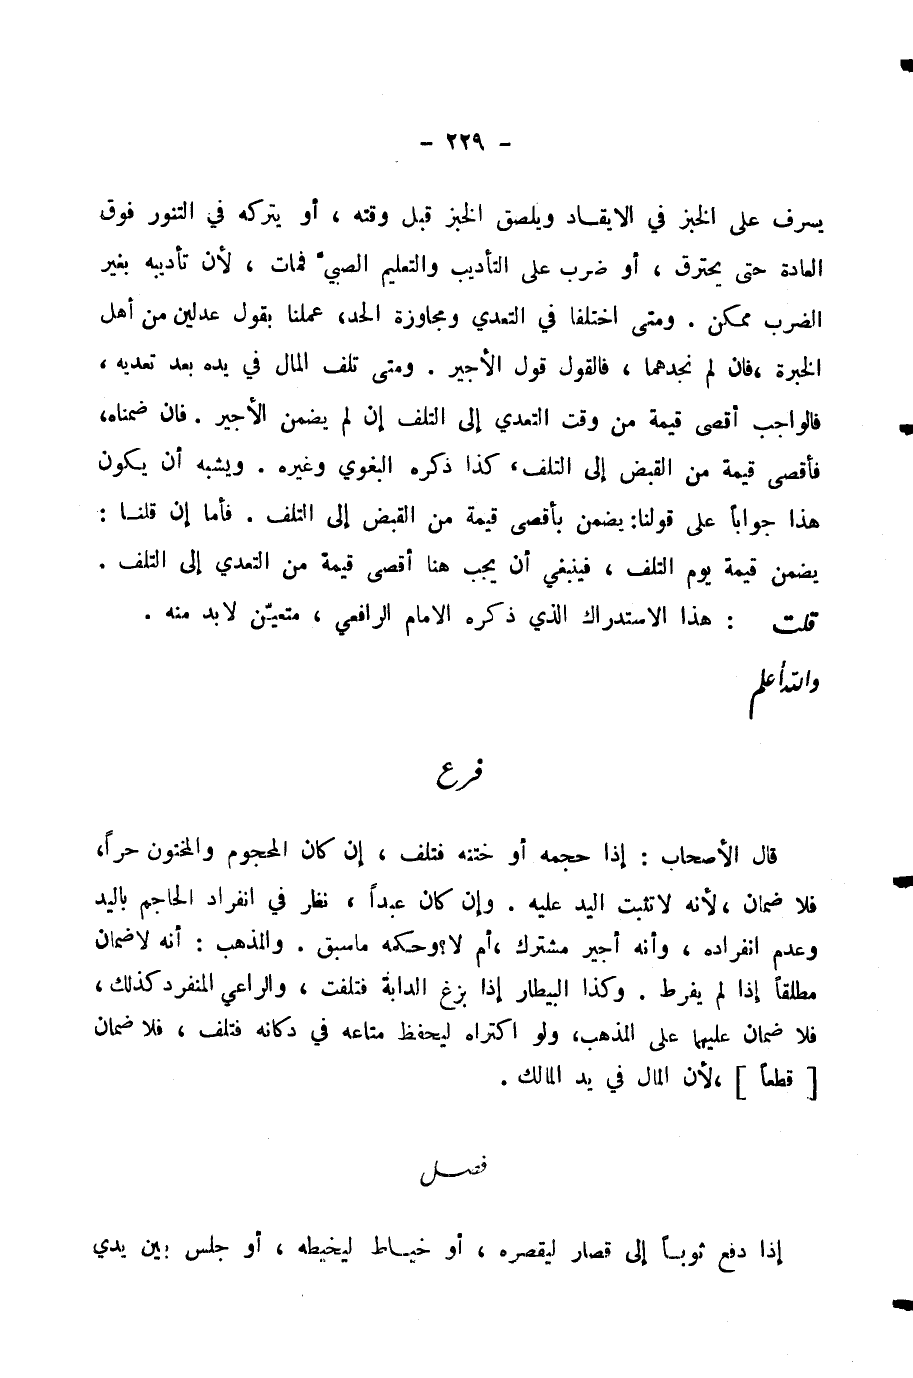 - ٢٢٩ -
يسرف على الخبز في الايقاد ويلصق الخبز قبل وقته ، أو يتركه في التنور فوق
العادة حتى يحترق ، أو ضرب على التأديب والتعليم الصبيَّ فمات ، لأن تأديبه بغير
الضرب ممكن . ومتى اختلفا في التعدي ومجاوزة الحد، عملنا بقول عدلين من أهل
الخبرة ،فان لم نجدهما ، فالقول قول الأجير . ومتى تلف المال في يده بعد تعديه ،
فالواجب أقصى قيمة من وقت التعدي إلى التلف إن لم يضمن الأجير . فان ضمناه،
فأقصى قيمة من القبض إلى التلف، كذا ذكره البغوي وغيره . ويشبه أن يكون
هذا جواباً على قولنا: يضمن بأقصى قيمة من القبض إلى التلف . فأما إن قلنا :
يضمن قيمة يوم التلف ، فينبغي أن يجب هنا أقصى قيمة من التعدي إلى التلف .
قلت : هذا الاستدراك الذي ذكره الامام الرافعي ، متعيّن لابد منه .
والله أعلم
فرع
قال الأصحاب : إذا حجمه أو ختنه فتلف ، إن كان المحجوم والمختون حراً،
فلا ضمان ،لأنه لاتثبت اليد عليه . وإن كان عبداً ، نظر في انفراد الحاجم باليد
وعدم انفراده ، وأنه أجير مشترك ،أم لا؟وحكمه ماسبق . والمذهب : أنه لاضمان
مطلقاً إذا لم يفرط . وكذا البيطار إذا بزغ الدابة فتلفت ، والراعي المنفرد كذلك ،
فلا ضمان عليها على المذهب، ولو اكتراه ليحفظ متاعه في دكانه فتلف ، فلا ضمان
[ قطعاً ] ،لأن المال في يد المالك .
فصل
إذا دفع ثوباً إلى قصار ليقصره ، أو خياط ليخيطه ، أو جلس بين يدي